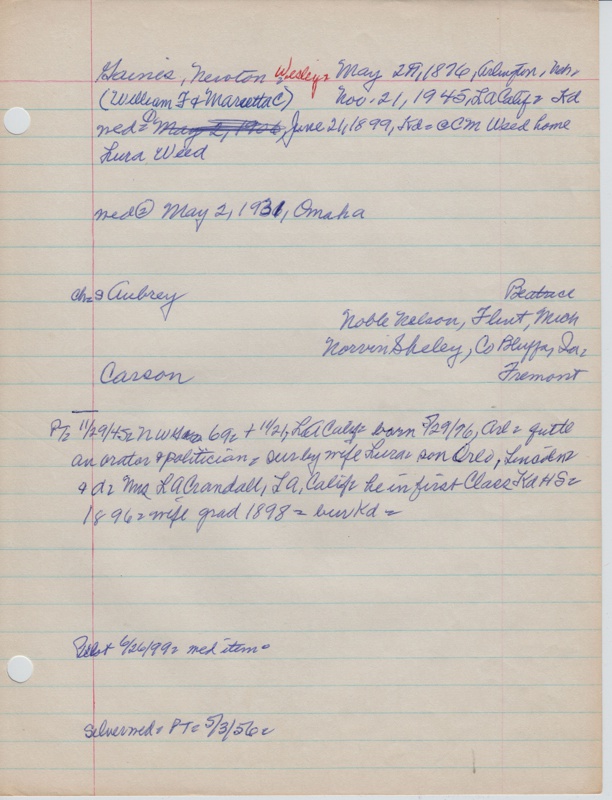 Gaines, Newton Wesley= May 29, 1876, Arlington, Neb=
(William F & Maretta C) Nov. 21, 1945, LA Calif= Kd
med= ① May 2, 1906, June 21, 1899, Kd= @ CM Weed home
Lura Weed
med② May 2, 1931, Omaha
ch= Aubrey Beatrice
Noble Nelson, Flint, Mich
Norvin Sheley, Co Bluffs, Ia=
Carson Fremont
PT= 11/29/45= N W 69= + 11/21, LA Calif= born 5/29/76, Arl= quite
an orator & politician= sur by wife Lura= son Orlo, Lincoln
& d= Mrs LA Crandall, LA, Calif= he in first Class Kd HS=
1896= wife grad 1898= bur Kd=
6/26/99= med item=
Silvermed= PT= 5/3/56=